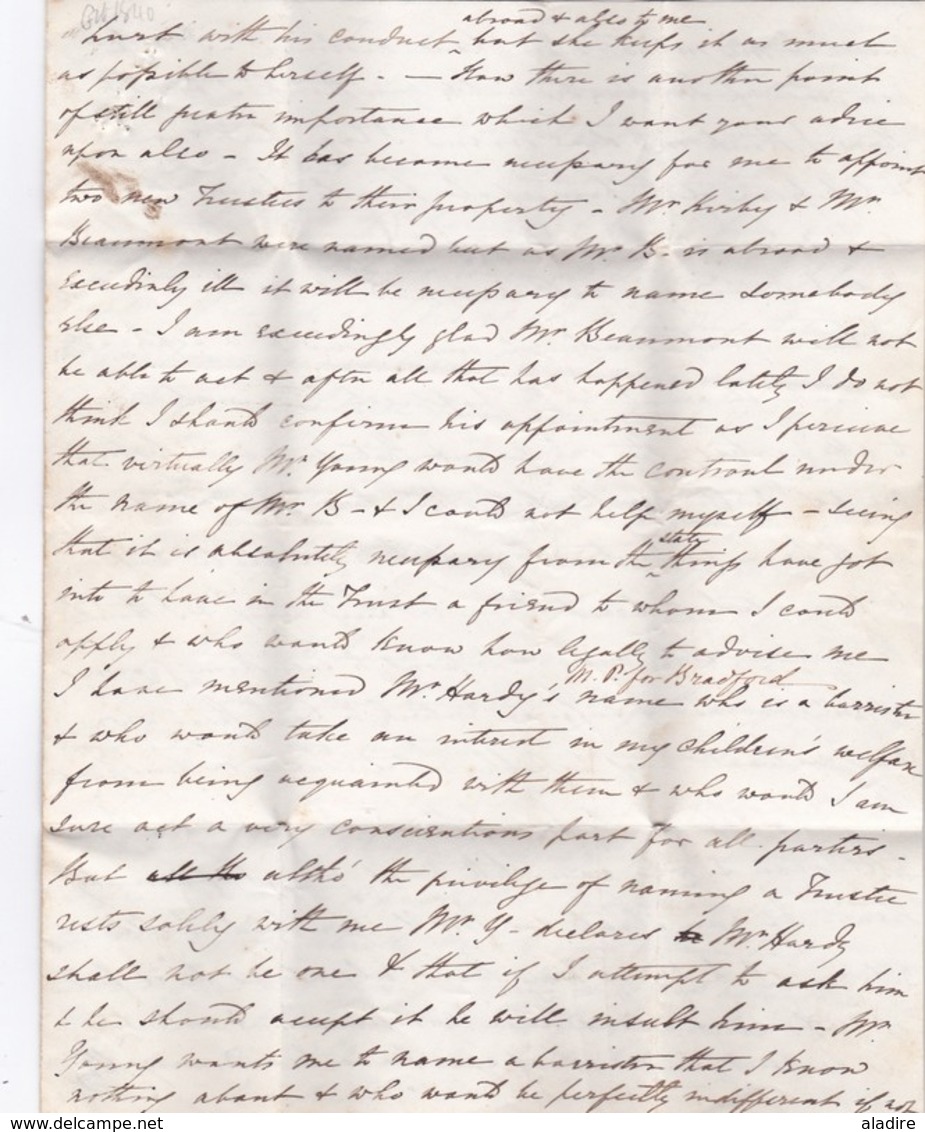 abroad & also to me
hurt with his conduct, but she keeps it as much
as possible to herself. — Now there is another point
of still greater importance which I want your advice
upon also - It has become necessary for me to appoint
two new Trustees to their property - Mr Kirby & Mr
Beaumont were named but as Mr B. is abroad &
exceedinly ill it will be necessary to name somebody
else - I am exceedingly glad Mr Beaumont will not
be able to act & after all that has happened lately I do not
think I should confirm his appointment as I perceive
that virtually Mr Young would have the controul under
the name of Mr B - & I could not help myself - seeing
state
that it is absolutely necessary from the things have got
into to have in the Trust a friend to whom I could
apply & who would know how legally to advise me
M.P. for Bradford
I have mentioned Mr Hardy's name who is a barrister
& who would take an interest in my children's welfare
from being acquainted with them & who would I am
sure act a very conscientious part for all parties -
But all the altho' the privilege of naming a Trustee
rests solely with me Mr Y - declares Mr Hardy
shall not be one & that if I attempt to ask him
& he should accept it he will insult him - Mr
Young wants me to name a barrister that I know
nothing about & who would be perfectly indifferent if not
aladire